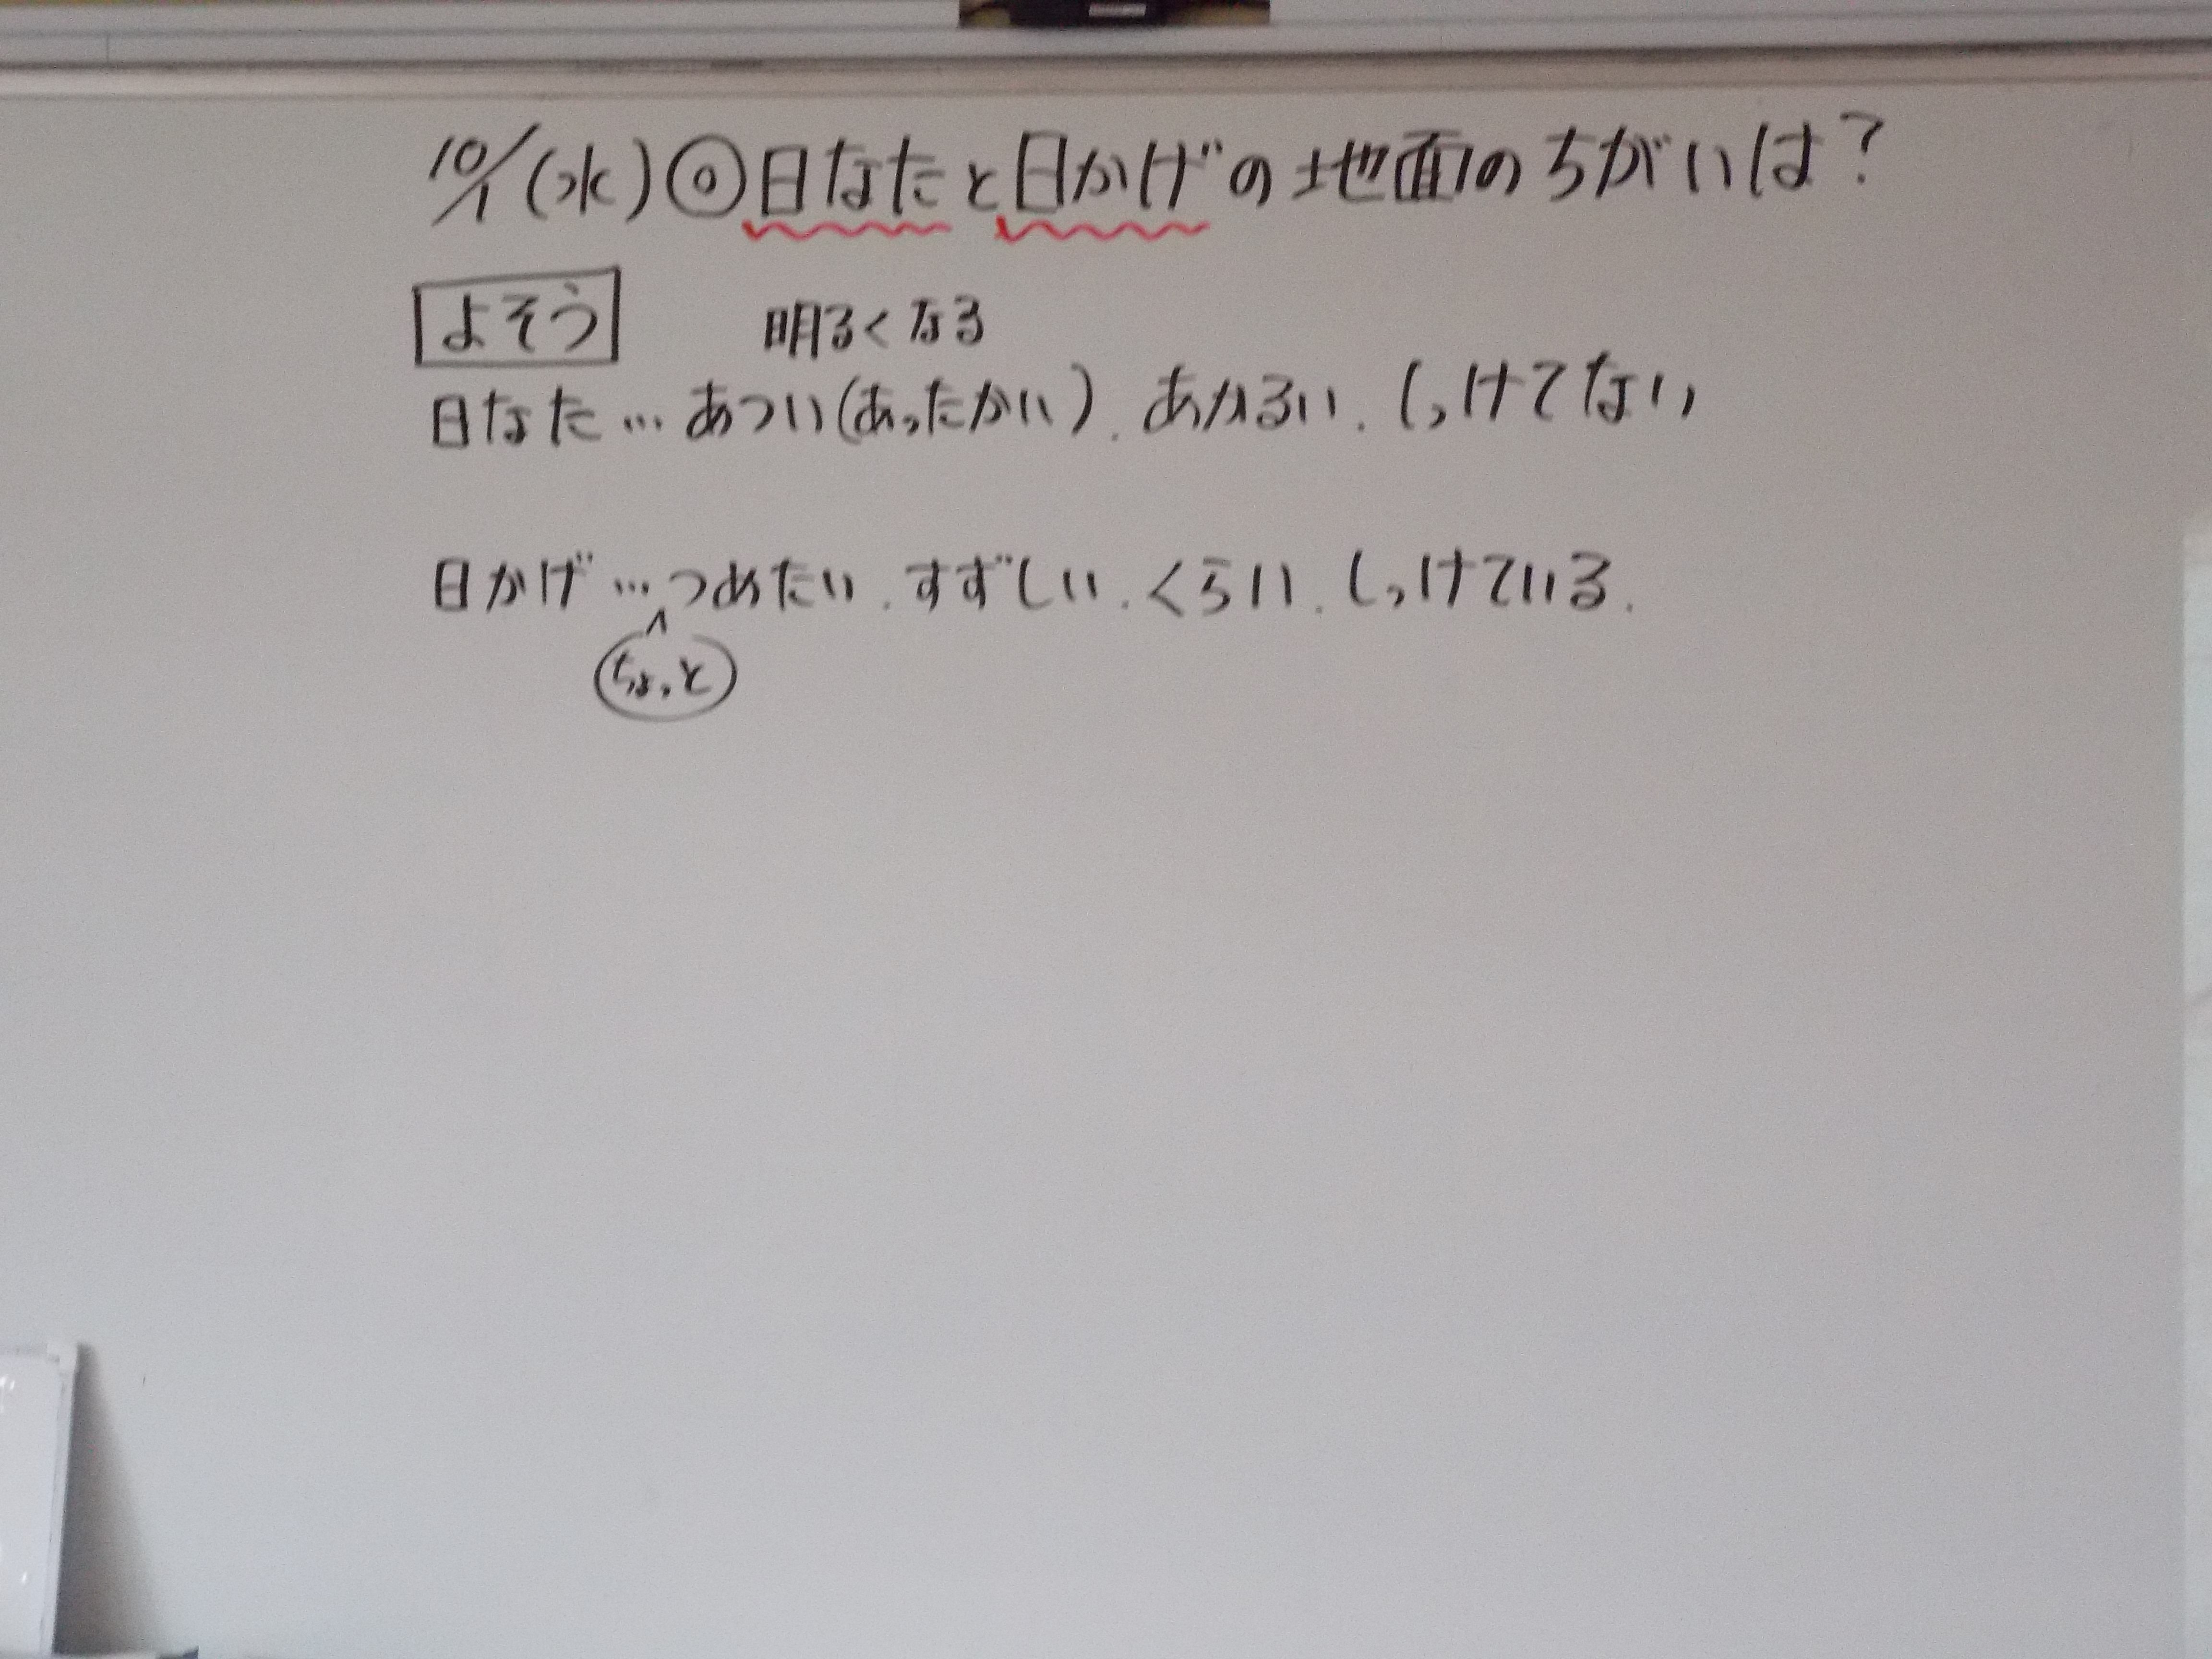 10/1(水)◎日なたと日かげの地面のちがいは?
よそう 明るくなる
日なた…あつい(あったかい).あかるい.しっけてない
日かげ…つめたい.すずしい.くらい.しっけている.
ちょっと